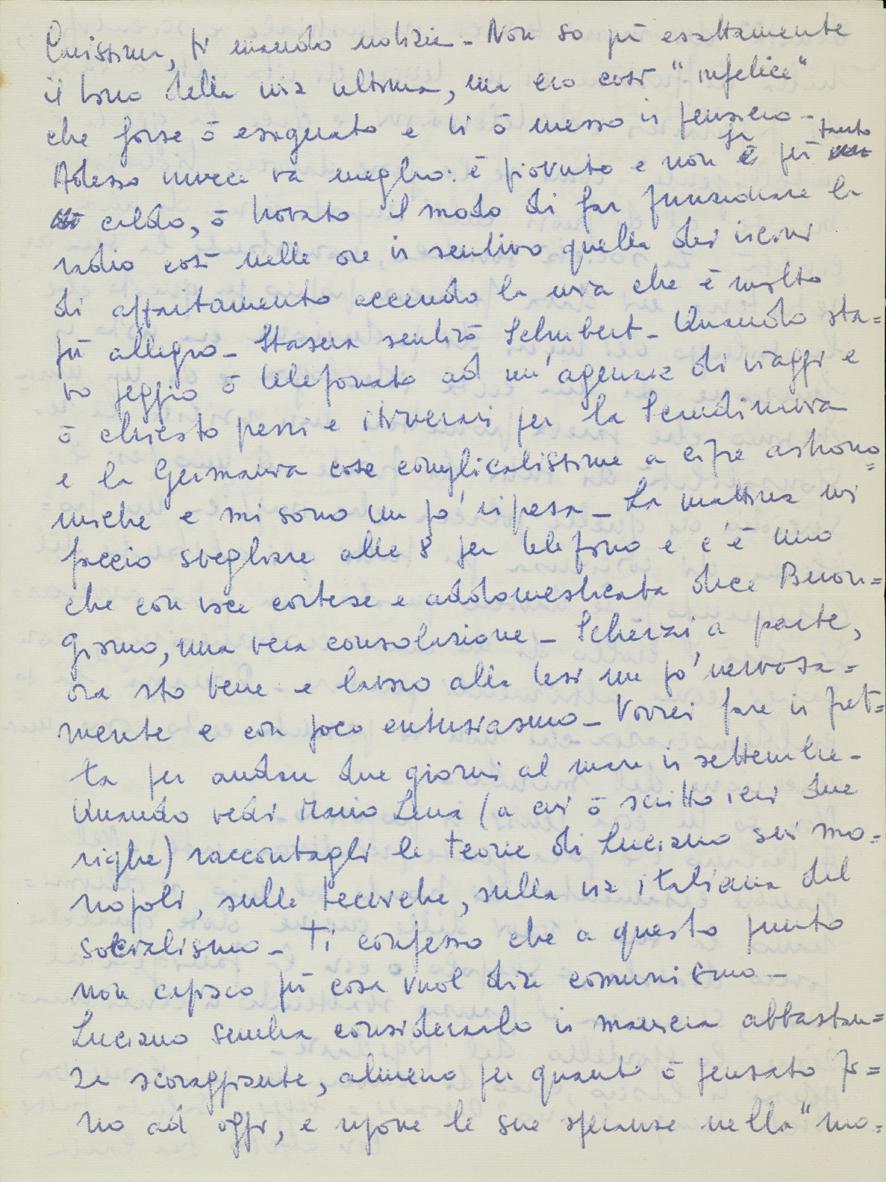 Carissima, ti mando notizie - Non so più esattamente
il tono della mia ultima, ma ero così "infelice"
che forse ò esagerato e ti ò messo in pensiero -
Adesso invece va meglio: è piovuto e non fa è più tanto
caldo, ò trovato il modo di far funzionare la
radio così nelle ore in sentivo quella dei vicini
di appartamento accendo la mia che è molto
più allegra - Stasera sentirò Schubert - Quando sta=
vo peggio ò telefonato ad un'agenzia di viaggi e
ò chiesto prezzi e itinerari per la Scandinavia
e la Germania cose complicatissime a cifre astrono=
miche e mi sono un po' ripresa - La mattina mi
faccio svegliare alle 8 per telefono e c'è uno
che con voce cortese e addomesticata dice Buon=
giorno, una vera consolazione - Scherzi a parte,
ora sto bene e lavoro alla tesi un po' nervosa=
mente e con poco entusiasmo - Vorrei fare in fret=
ta per andare due giorni al mare in settembre -
Quando vedi Mario Luna (a cui ò scritto ieri due
righe) raccontagli le teorie di Luciano sui mo=
nopoli, sulle ricerche, sulla via italiana del
socialismo - Ti confesso che a questo punto
non capisco più cosa vuol dire comunismo -
Luciano sembra considerarlo in maniera abbastan=
za scoraggiante, almeno per quanto ò pensato fi=
no ad oggi, e ripone le sue speranze nella "mo=